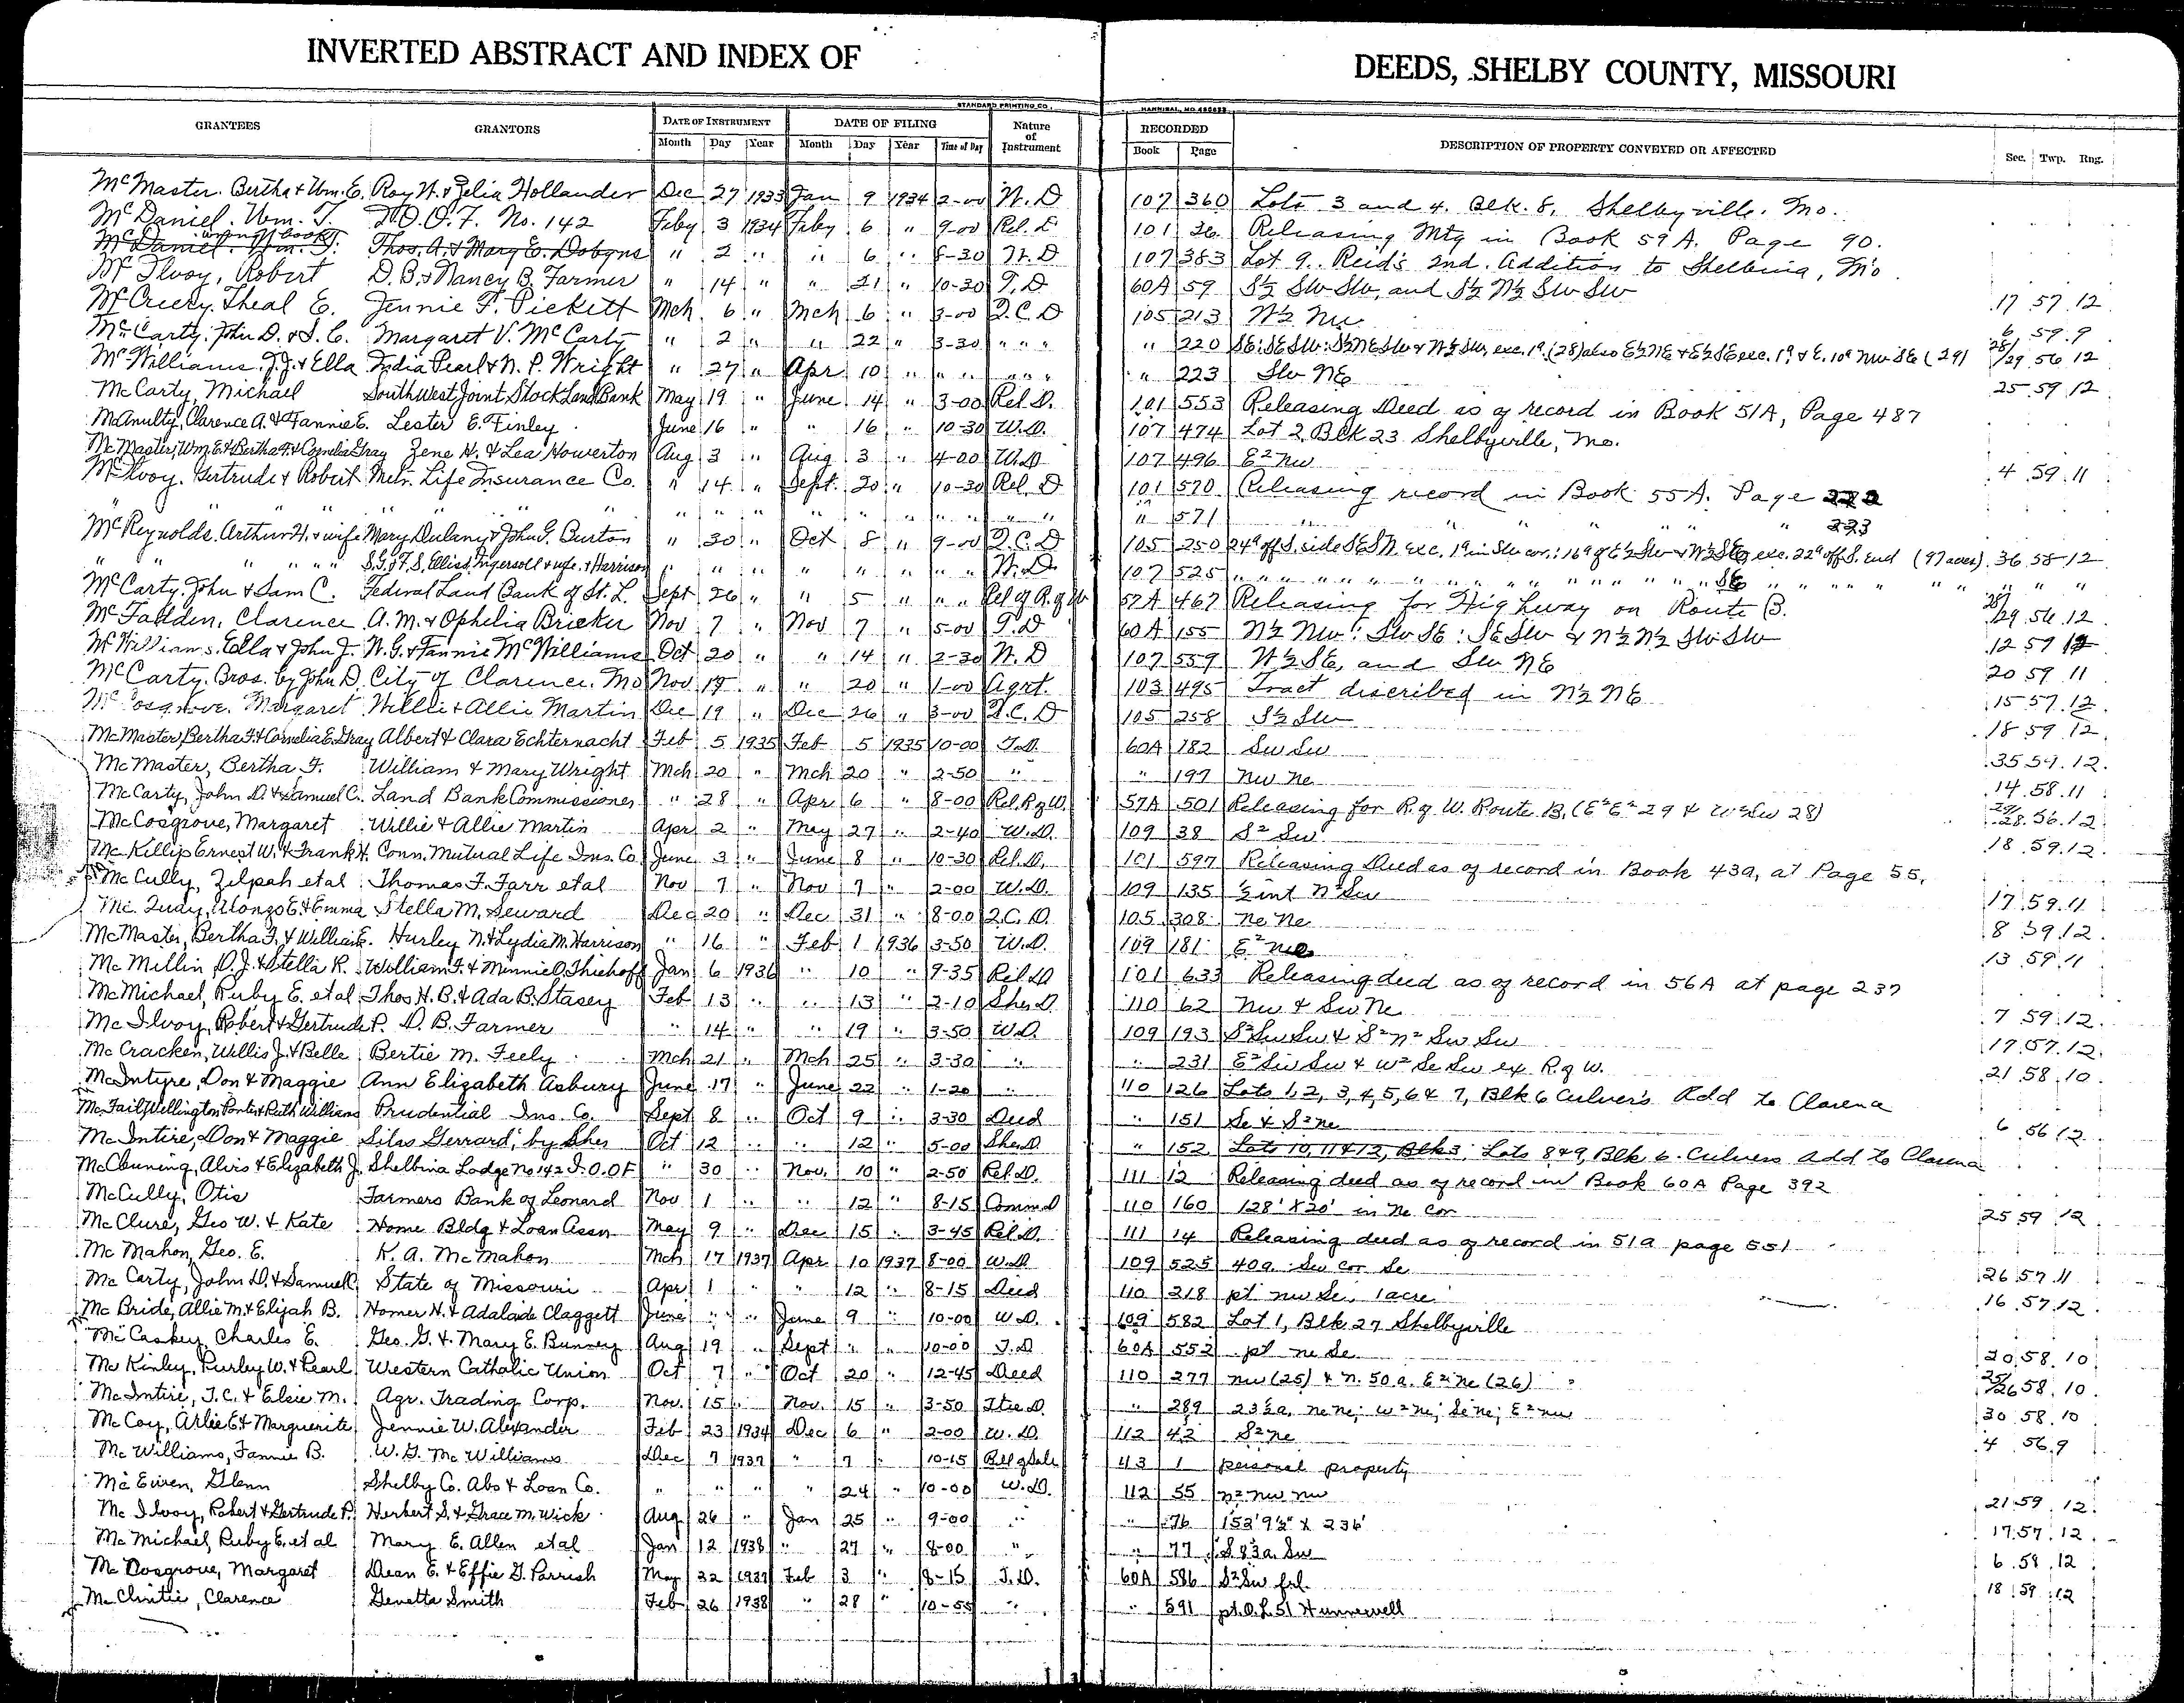 INVERTED ABSTRACT AND INDEX OF DEEDS, SHELBY COUNTY, MISSOURI
STANDARD PRINTING CO.
GRANTEES GRANTORS DATE OF INSTRUMENT DATE OF FILING Nature of Instrument RECORDED DESCRIPTION OF PROPERTY CONVEYED OR AFFECTED Sec. Twp. Rng.
Month Day Year Month Day Year Time of Day Book Page
McMaster. Bertha & Wm. E. Roy W. & Zelia Hollander Dec 27 1933 Jan 9 1934 2-00 W. D 107 360 Lots 3 and 4. Blk. 8. Shelbyville. Mo.
McDaniel. Wm. T. I.O.O.F. No. 142 Feby 3 1934 Feby 6 " 9-00 Rel. D 101 36 Releasing Mtg in Book 59A. Page 90.
wrong book
McDaniel. Wm. T. Thos. A. & Mary E. Dobyns " 2 " " 6 " 8-30 W. D 107 383 Lot 9. Reid's 2nd. Addition to Shelbina, Mo.
McIlvoy, Robert D. B. & Nancy B. Farmer " 14 " " 21 " 10-30 T. D 60A 59 S½ Sw Sw, and S½ N½ Sw Sw 17 57 12
McCriery. Theal E. Jennie F. Pickett Mch 6 " Mch 6 " 3-00 Q. C. D 105 213 W½ Nw 6 59 9
McCarty. John D. & S. C. Margaret V. McCarty " 2 " " 22 " 3-30 " " " " 220 SE: SE Sw: S½ NE Sw & W½ Sw, exc. 1ª (28) also E½ NE & E½ SE exc. 1ª & E. 10ª Nw SE (29) 28/29 56 12
McWilliams. J. J. & Ella India Pearl & N. P. Wright " 27 " Apr 10 " " " " " " " 223 Sw NE 25 59 12
McCarty, Michael Southwest Joint Stock Land Bank May 19 " June 14 " 3-00 Rel. D. 101 553 Releasing Deed as of record in Book 51A, Page 487
McAnulty, Clarence A. & Fannie E. Lester E. Finley June 16 " " 16 " 10-30 W. D. 107 474 Lot 2 Blk 23 Shelbyville, Mo.
McMaster, Wm. E. & Bertha F. & Cornelia Gray Zene H. & Lea Howerton Aug 3 " Aug 3 " 4-00 W. D 107 496 E² nw 4 59 11
McIlvoy. Gertrude & Robert Metr. Life Insurance Co. " 14 " Sept. 20 " 10-30 Rel. D 101 570 Releasing record in Book 55A. Page 222
" " " " " " " " " " " " " " " " " 571 " " " " " 223
McReynolds. Arthur H. & wife Mary Dulany & John G. Burton " 30 " Oct 8 " 9-00 Q. C. D 105 250 24ª off S. side SE Sw. exc. 1ª in Sw cor.: 16ª of E½ Sw & W½ SE exc. 22ª off S. end (97 acres). 36 58 12
" " " " " S. G. & F. S. Ellis & Ingersoll & wife. & Harrison " " " " " " " " W. D. 107 525 " " " " " " " " " " " " SE " " " " " " "
McCarty. John & Sam C. Federal Land Bank of St. L. Sept 26 " " 5 " " " Rel of R. of W 57A 467 Releasing for Highway on Route B. 28/29 56 12
McFadden, Clarence A. M. & Ophelia Bricker Nov 7 " Nov 7 " 5-00 T. D 60A 155 N½ Nw: Sw SE: SE Sw & N½ N½ Sw Sw 12 57 12
McWilliams. Ella & John J. W. G. & Fannie McWilliams Oct 20 " " 14 " 2-30 W. D 107 559 W½ SE, and Sw NE 20 59 11
McCarty. Bros. by John D. City of Clarence. Mo Nov 17 " " 20 " 1-00 Agrt. 103 495 Tract discribed in N½ NE 15 57 12
McCosgrove. Margaret Willie & Allie Martin Dec 19 " Dec 26 " 3-00 Q. C. D 105 258 S½ Sw 18 59 12
McMaster, Bertha F. & Cornelia E. Gray Albert & Clara Echternacht Feb 5 1935 Feb 5 1935 10-00 T. D. 60A 182 Sw Sw 35 59 12
McMaster, Bertha F. William & Mary Wright Mch 20 " Mch 20 " 2-50 " " 197 nw ne 14 58 11
McCarty, John D. & Samuel C. Land Bank Commissioner " 28 " Apr 6 " 8-00 Rel. R of W. 57A 501 Releasing for R. of W. Route B. (E² E² 29 & W² Sw 28) 29/28 56 12
McCosgrove, Margaret Willie & Allie Martin Apr 2 " May 27 " 2-40 W. D. 109 38 S² Sw 18 59 12
McKillip Ernest W. & Frank H. Conn. Mutual Life Ins. Co. June 3 " June 8 " 10-30 Rel. D. 101 597 Releasing Deed as of record in Book 43a, at Page 55.
McCully, Zilpah et al Thomas F. Farr et al Nov 7 " Nov 7 " 2-00 W. D. 109 135 ½ int N² Sw 17 59 11
McQuay, Alonzo E. & Emma Stella M. Seward Dec 20 " Dec 31 " 8-00 Q. C. D. 105 308 ne ne 8 59 12
McMaster, Bertha F. & William E. Hurley N. & Lydia M. Harrison " 16 " Feb 1 1936 3-50 W. D. 109 181 E² ne 13 59 11
McMillin D. J. & Stella R. William F. & Minnie O. Thiehoff Jan 6 1936 " 10 " 9-35 Rel D 101 633 Releasing deed as of record in 56A at page 237
McMichael, Ruby E. et al Thos. H. B. & Ada B. Stasey Feb 13 " " 13 " 2-10 She. D. 110 62 nw & Sw Ne 7 59 12
McIlvoy, Robert & Gertrude P. D. B. Farmer " 14 " " 19 " 3-50 W. D. 109 193 S² Sw Sw & S² n² Sw Sw 17 57 12
McCracken, Willis J. & Belle Bertie M. Feely Mch 21 " Mch 25 " 3-30 " " 231 E² Sw Sw & W² Se Sw ex R. of W. 21 58 10
McIntyre, Don & Maggie Ann Elizabeth Asbury June 17 " June 22 " 1-20 " 110 126 Lots 1, 2, 3, 4, 5, 6 & 7, Blk 6 Culver's Add to Clarena
McFail, Wellington Porter & Ruth Williams Prudential Ins. Co. Sept 8 " Oct 9 " 3-30 Deed " 151 Se & S² ne 6 56 12
McIntire, Don & Maggie Silas Gerrard, by Sher Oct 12 " " 12 " 5-00 She. D. " 152 Lots 10, 11 & 12, Blk 3; Lots 8 & 9, Blk 6. Culvers Add to Clarena
McCluning, Alvis & Elizabeth J. Shelbina Lodge No 142 I.O.O.F " 30 " Nov. 10 " 2-50 Rel. D. 111 12 Releasing deed as of record in Book 60A Page 392
McCully, Otis Farmers Bank of Leonard Nov 1 " " 12 " 8-15 Comm. D 110 160 128' X 20' in Ne Cor 25 59 12
McClure, Geo W. & Kate Home Bldg & Loan Assn May 9 " Dec 15 " 3-45 Rel. D. 111 14 Releasing deed as of record in 51a page 551
McMahon, Geo. E. K. A. McMahon Mch 17 1937 Apr 10 1937 8-00 W. D. 109 525 40a. Sw cor Se 26 57 11
McCarty, John D. & Samuel C. State of Missouri Apr 1 " " 12 " 8-15 Deed 110 218 pt nw Se, 1 acre 16 57 12
McBride, Allie M. & Elijah B. Homer H. & Adalaide Claggett June " " June 9 " 10-00 W. D. 109 582 Lot 1, Blk 27 Shelbyville
McCaskey, Charles E. Geo. G. & Mary E. Bunney Aug 19 " Sept " " 10-00 T. D 60A 552 pt ne Se 20 58 10
McKinley, Purley W. & Pearl Western Catholic Union Oct 7 " Oct 20 " 12-45 Deed 110 277 nw (25) & n. 50 a. E² ne (26) 25/26 58 10
McIntire, T. C. & Elsie M. Agr. Trading Corp. Nov. 15 " Nov. 15 " 3-50 Stee D. " 289 23½a. ne ne; w² ne; Se ne; E² nw 30 58 10
McCoy, Arlie E. & Marguerite Jennie W. Alexander Feb 23 1934 Dec 6 " 2-00 W. D. 112 42 S² ne 4 56 9
McWilliams, Fannie B. W. G. McWilliams Dec 7 1937 " 7 " 10-15 Bill of Sale 43 1 personal property
McEwen, Glenn Shelby Co. Abs & Loan Co. " " " " 24 " 10-00 W. D. 112 55 n² nw nw 21 59 12
McIlvoy, Robert & Gertrude P. Herbert S. & Grace M. Wick Aug 26 " Jan 25 " 9-00 " " 76 153' 9½" X 236' 17 57 12
McMichael, Ruby E. et al Mary E. Allen et al Jan 12 1938 " 27 " 8-00 " " 77 S 83a. Sw 6 58 12
McCosgrove, Margaret Dean E. & Effie G. Parrish May 22 1937 Feb 3 " 8-15 T. D. 60A 586 S² Sw frl. 18 59 12
McClintic, Clarence Genetta Smith Feb 26 1938 " 28 " 10-55 " " 591 pt. O. L. 51 Hunnewell